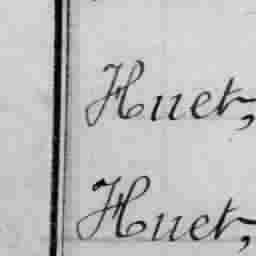 Huet,
Huet,